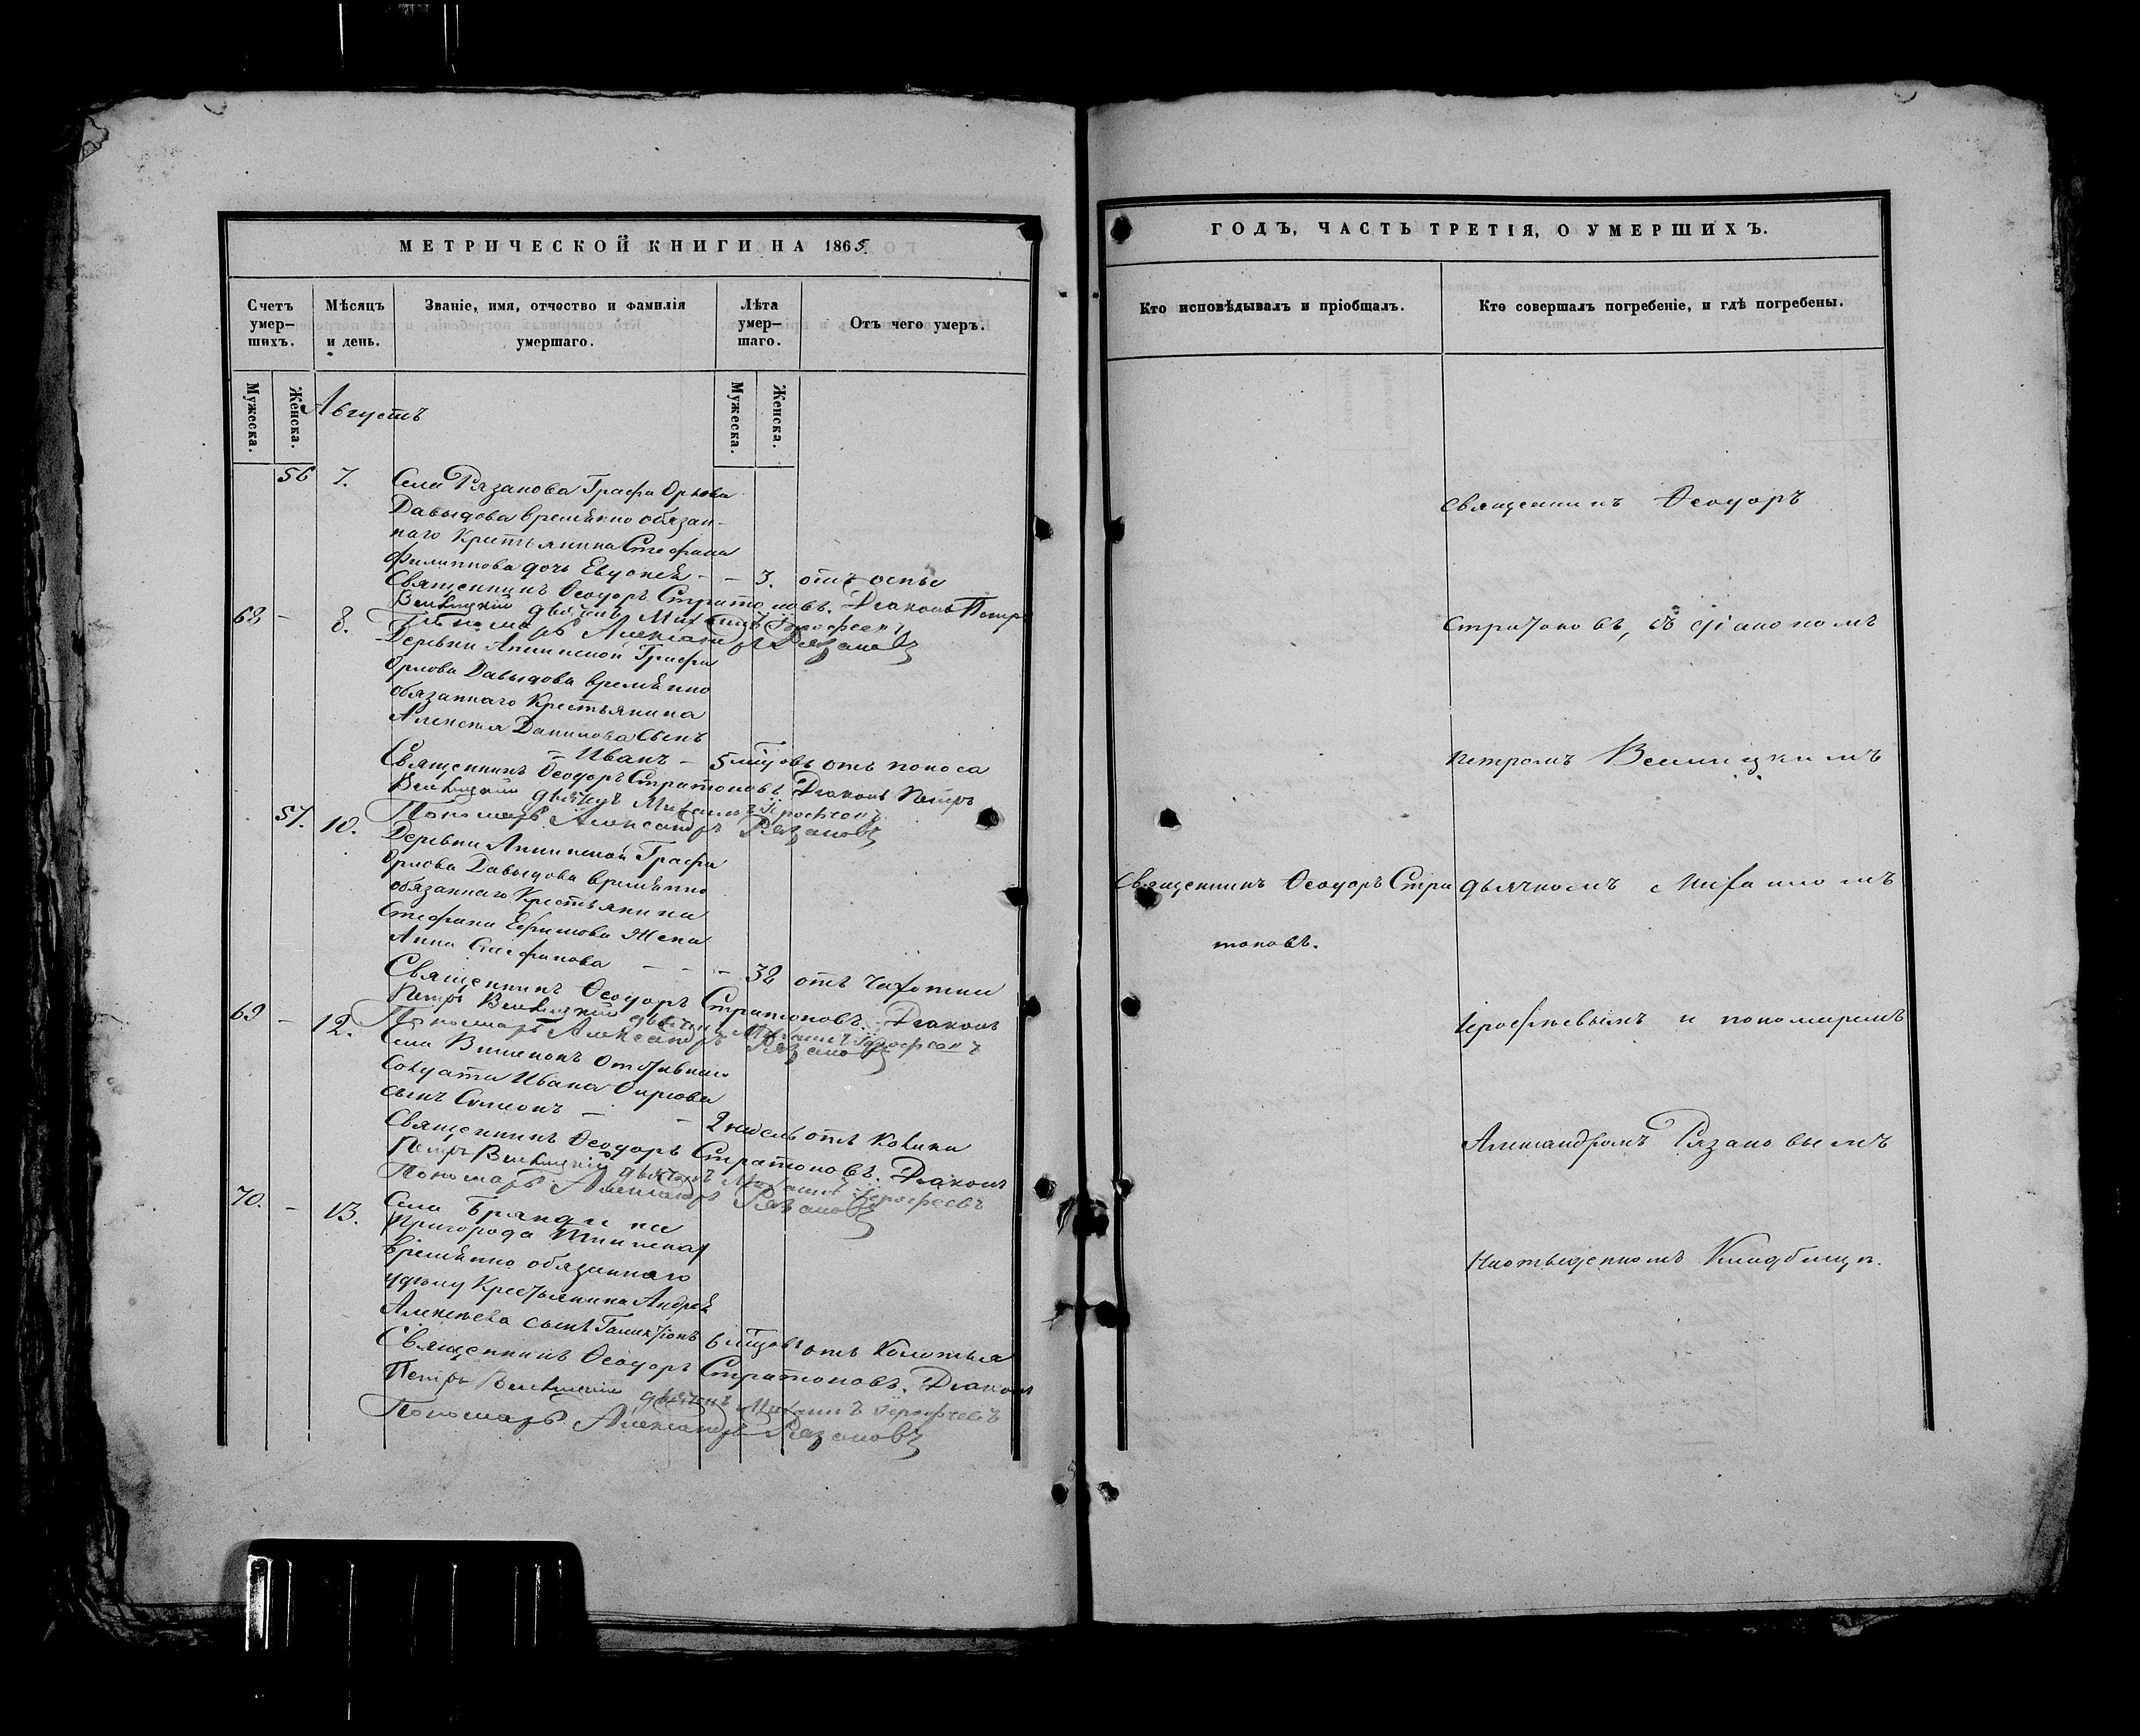 МЕТРИЧЕСКОЙ КНИГИ НА 1865
Счетъ умер-шихъ.
Мѣсяцъ и день.
Званіе, имя, отчество и фамилія умершаго.
Лѣта умер-шаго.
Отъ чего умеръ.
Мужеска.
Женска.
Мужеска.
Женска.
Августъ
56 7. Села Рязанова Графа Орлова
Давыдова временно обязан-
наго Крестьянина Стефана
Филиппова дочь Евдокея - - 3. отъ оспы
Священникъ Ѳеодоръ Стратоновъ. Діаконъ Петръ
дьячекъ Михаилъ Іерофеевъ
Пономарь Александръ Рязановъ
68 - 8. Деревни Аннинской Графа
Орлова Давыдова временно
обязаннаго Крестьянина
Алексея Данилова сынъ
Иванъ - 5 мцовъ отъ поноса
Священникъ Ѳеодоръ Стратоновъ Діаконъ Петръ
дьячекъ Михаилъ Іерофеевъ
Пономарь Александръ Рязановъ
57. 10. Деревни Аннинской Графа
Орлова Давыдова временно
обязаннаго Крестьянина
Стефана Ефимова жена
Анна Стефанова - - - 32 отъ чахотки
Священникъ Ѳеодоръ Стратоновъ. Діаконъ
Петръ дьячекъ Михаилъ Іерофеевъ
Пономарь Александръ Рязановъ
69 - 12. Села
Солдата Ивана сынъ Симеонъ - - 2 недель отъ
Священникъ Ѳеодоръ Стратоновъ. Діаконъ
Петръ дьячекъ Михаилъ Іерофеевъ
Пономарь Александръ Рязановъ
70. - 13. Села
Пригорода
временно обязаннаго
удѣлу Крестьянина Андрея
Алексеева сынъ 6 мцовъ отъ
Священникъ Ѳеодоръ Стратоновъ. Діаконъ
Петръ дьячекъ Михаилъ Іерофеевъ
Пономарь Александръ Рязановъ
ГОДЪ, ЧАСТЬ ТРЕТІЯ, О УМЕРШИХЪ.
Кто исповѣдывалъ и пріобщалъ.
Кто совершалъ погребеніе, и гдѣ погребены.
Священникъ Ѳеодоръ Стра
тоновъ.
Священникъ Ѳеодоръ
Стратоновъ, съ діакономъ
Петромъ
дьячкомъ Михаиломъ
Іерофѣевымъ и пономаремъ
Александромъ Рязановымъ
На отведенномъ Кладбищѣ.